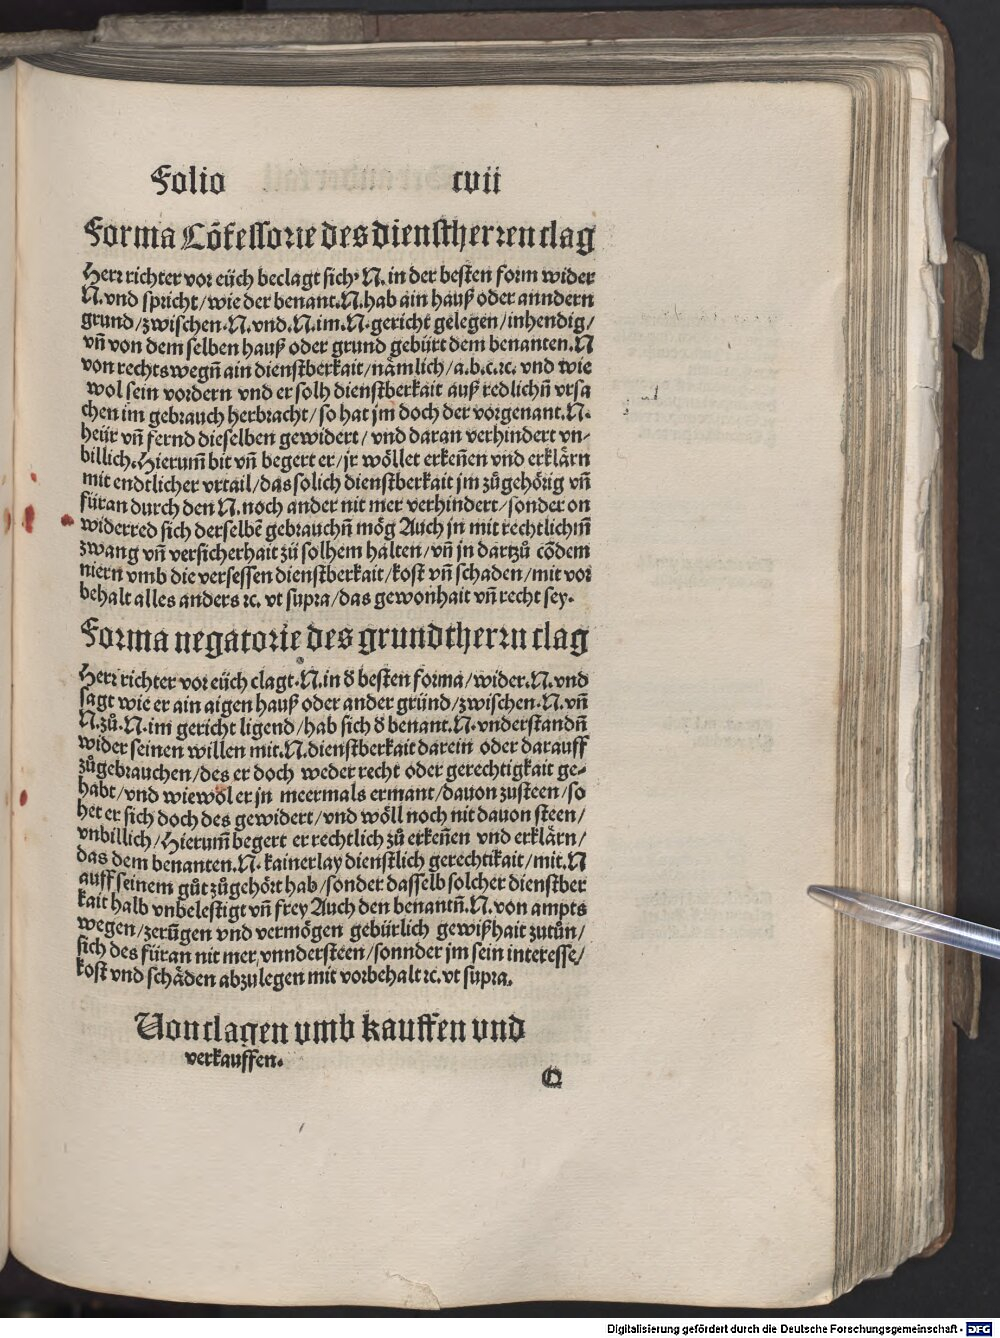 Folio cvii
Forma Cõfessorie des dienstherren clag
Herr richter vor eüch beclagt sich. N. in der besten form wider
N. vnd spricht/wie der benant. N. hab ain hauß oder anndern
grund/zwischen. N. vnd. N. im. N. gericht gelegen/inhendig/
vñ von dem selben hauß oder grund gebürt dem benanten. N
von rechts wegñ ain dienstberkait/nämlich/a.b.c.ꝛc. vnd wie
wol sein vordern vnd er solh dienstberkait auß redlichñ vrsa
chen im gebrauch herbracht/so hat jm doch der vorgenant. N.
heür vñ fernd dieselben gewidert/vnd daran verhindert vn-
billich. Hierum̃ bit vñ begert er/jr wöllet erkeñen vnd erklärn
mit endtlicher vrtail/das solich dienstberkait jm zůgehörig vñ
füran durch den N. noch ander nit mer verhindert/sonder on
widerred sich derselbẽ gebrauchñ mög Auch jn mit rechtlichm̃
zwang vñ versicherhait zü solhem halten/vñ jn dartzů cõdem
niern vmb die versessen dienstberkait/kost vñ schaden/mit vor
behalt alles anders ꝛc. vt supra/das gewonhait vñ recht sey.
Forma negatorie des grundtherrn clag
Herr richter vor eüch clagt. N. in ð besten forma/wider. N. vnd
sagt wie er ain aigen hauß oder ander gründ/zwischen. N. vñ
N. zů. N. im gericht ligend/hab sich ð benant. N. vnderstandñ
wider seinen willen mit. N. dienstberkait darein oder darauff
zůgebrauchen/des er doch weder recht oder gerechtigkait ge-
habt/vnd wiewol er jn meermals ermant/dauon zusteen/so
het er sich doch des gewidert/vnd wöll noch nit dauon steen/
vnbillich/Hierum̃ begert er rechtlich zů erkeñen vnd erklärn/
das dem benanten. N. kainerlay dienstlich gerechtikait/mit. N
auff seinem gůt zůgehört hab/sonder dasselb solcher dienstber
kait halb vnbelestigt vñ frey Auch den benantñ. N. von ampts
wegen/zerůgen vnd vermögen gebürlich gewißhait zutůn/
sich des füran nit mer vnndersteen/sonnder jm sein interesse/
kost vnd schäden abzulegen mit vorbehalt ꝛc. vt supra.
Von clagen vmb kauffen vnd
verkauffen.
Digitalisierung gefördert durch die Deutsche Forschungsgemeinschaft - DFG